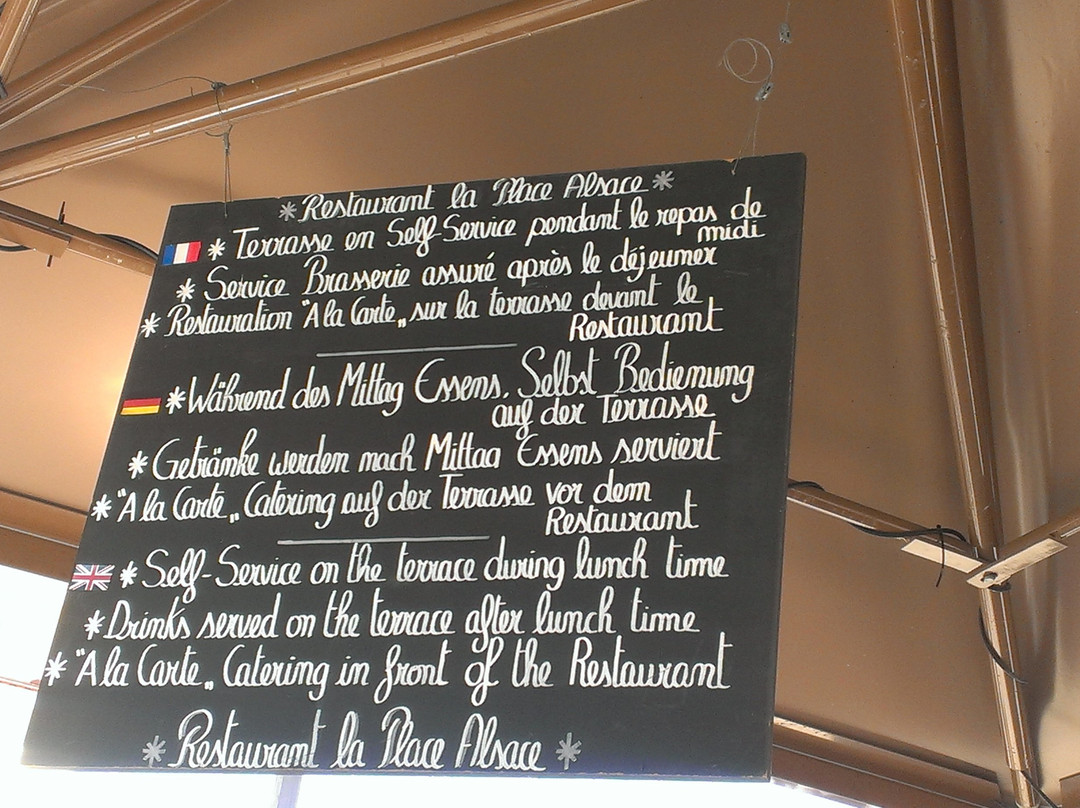 * Restaurant la Place Alsace *
* Terrasse en Self-Service pendant le repas de
midi
* Service Brasserie assuré après le déjeuner
* Restauration "A la Carte„ sur la terrasse devant le
Restaurant
* Während des Mittag Essens, Selbst Bedienung
auf der Terrasse
* Getränke werden nach Mittag Essens serviert
* "A la Carte„ Catering auf der Terrasse vor dem
Restaurant
* Self-Service on the terrace during lunch time
* Drinks served on the terrace after lunch time
* "A la Carte„ Catering in front of the Restaurant
* Restaurant la Place Alsace *